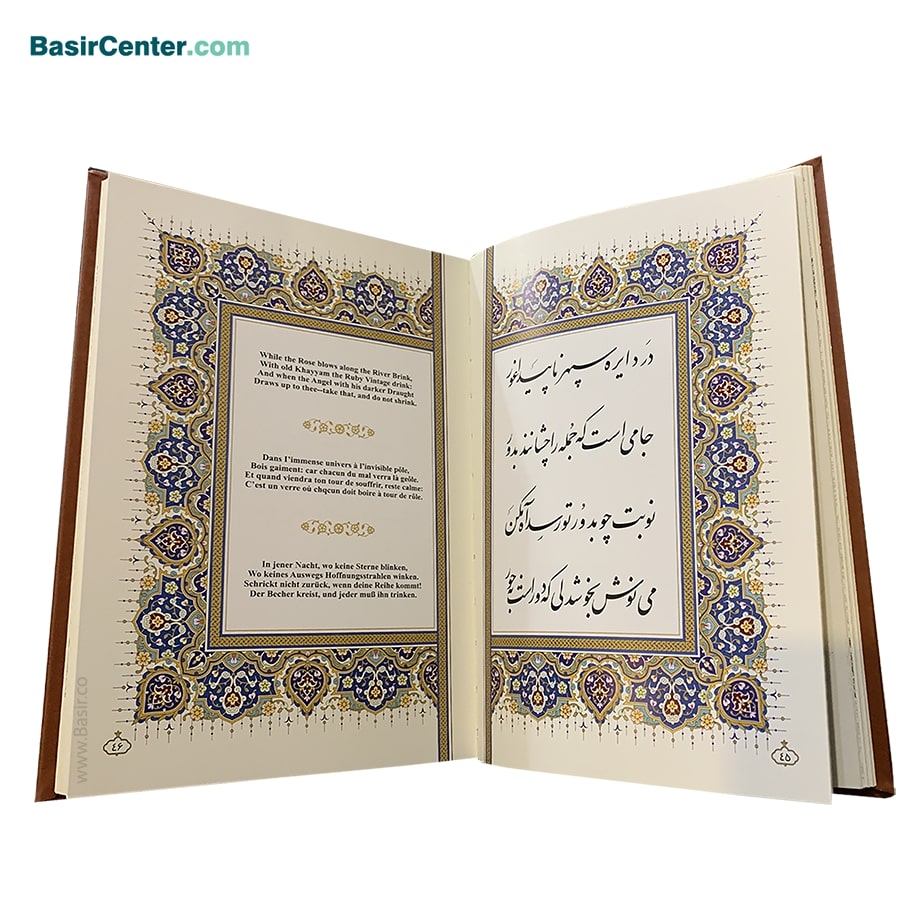 BasirCenter.com
در دایره سپهر ناپیدا غور
جامی است که جمله را چشانند بدور
نوبت چو بدور تو رسد آه مکن
می نوش بخوشدلی که دور است بجور
٤٥
While the Rose blows along the River Brink,
With old Khayyam the Ruby Vintage drink:
And when the Angel with his darker Draught
Draws up to thee--take that, and do not shrink.
Dans l'immense univers à l'invisible pôle,
Bois gaiment: car chacun du mal verra là geôle.
Et quand viendra ton tour de souffrir, reste calme:
C'est un verre où chqcun doit boire à tour de rôle.
In jener Nacht, wo keine Sterne blinken,
Wo keines Auswegs Hoffnungsstrahlen winken.
Schrickt nicht zurück, wenn deine Reihe kommt!
Der Becher kreist, und jeder muß ihn trinken.
٤٦
www.Basir.co